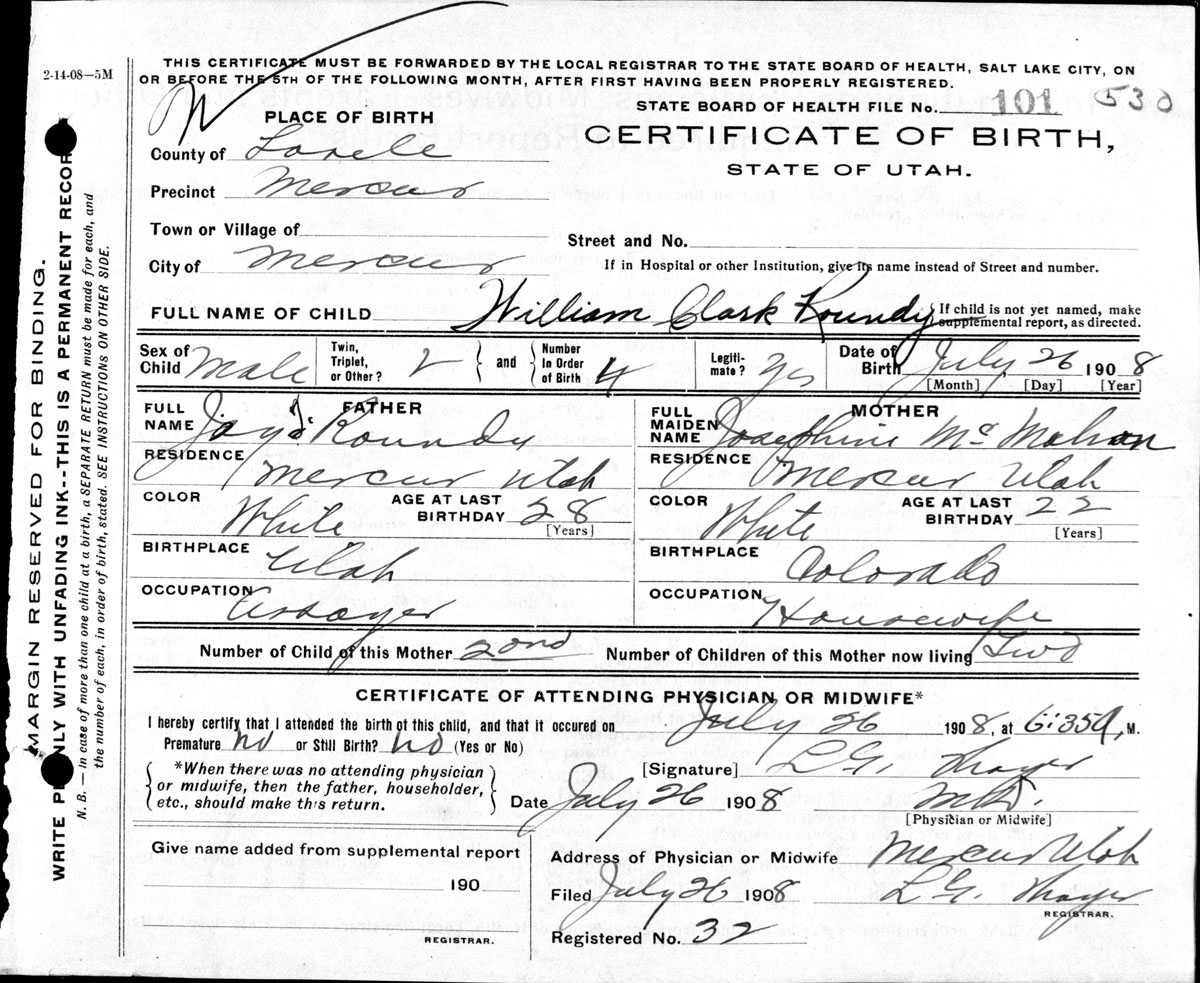 2-14-08—5M
THIS CERTIFICATE MUST BE FORWARDED BY THE LOCAL REGISTRAR TO THE STATE BOARD OF HEALTH, SALT LAKE CITY, ON
OR BEFORE THE 5TH OF THE FOLLOWING MONTH, AFTER FIRST HAVING BEEN PROPERLY REGISTERED.
STATE BOARD OF HEALTH FILE No. 101 530
PLACE OF BIRTH
CERTIFICATE OF BIRTH,
STATE OF UTAH.
County of Tooele
Precinct Mercur
Town or Village of
Street and No.
City of Mercur
If in Hospital or other Institution, give its name instead of Street and number.
FULL NAME OF CHILD William Clark Roundy { If child is not yet named, make supplemental report, as directed.
Sex of Child Male Twin, Triplet, or Other? { and } Number In Order of Birth 4 Legiti-mate? Yes Date of Birth July 26 1908
[Month] [Day] [Year]
FATHER
FULL NAME Jay Roundy
RESIDENCE Mercur Utah
COLOR White AGE AT LAST BIRTHDAY 28 [Years]
BIRTHPLACE Utah
OCCUPATION Assayer
MOTHER
FULL MAIDEN NAME Josephine McMahan
RESIDENCE Mercur Utah
COLOR White AGE AT LAST BIRTHDAY 22 [Years]
BIRTHPLACE Colorado
OCCUPATION Housewife
Number of Child of this Mother 2nd Number of Children of this Mother now living Two
CERTIFICATE OF ATTENDING PHYSICIAN OR MIDWIFE*
I hereby certify that I attended the birth of this child, and that it occured on July 26 1908, at 6:35 A, M.
Premature No or Still Birth? No (Yes or No)
{ *When there was no attending physician or midwife, then the father, householder, etc., should make this return. }
[Signature] L. G. Thayer
Date July 26 1908 M.D.
[Physician or Midwife]
Give name added from supplemental report
190
REGISTRAR.
Address of Physician or Midwife Mercur Utah
Filed July 26 1908 L. G. Thayer
REGISTRAR.
Registered No. 32
MARGIN RESERVED FOR BINDING.
WRITE PLAINLY WITH UNFADING INK--THIS IS A PERMANENT RECORD
N. B.—In case of more than one child at a birth, a SEPARATE RETURN must be made for each, and
the number of each, in order of birth, stated. SEE INSTRUCTIONS ON OTHER SIDE.